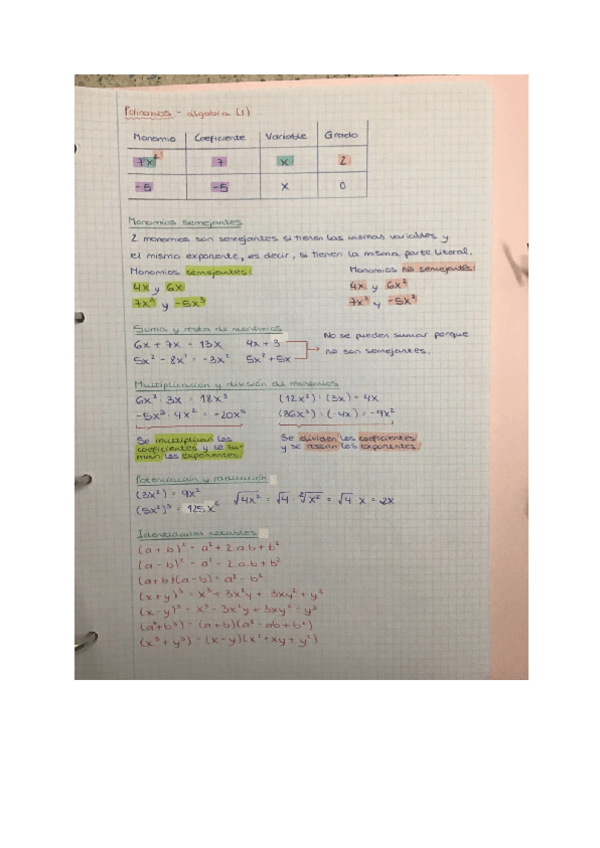 Polinomios - álgebra (1)
Monomio Coeficiente Variable Grado
7x² 7 x 2
-5 -5 x 0
Monomios semejantes
2 monomios son semejantes si tienen las mismas variables y
el mismo exponente, es decir, si tienen la misma parte literal.
Monomios semejantes: Monomios no semejantes:
4x y 6x 4x y 6x²
7x³ y -5x³ 7x³ y -5x²
Suma y resta de monomios
6x + 7x = 13x 4x + 3 No se pueden sumar porque
5x² - 8x² = -3x² 5x² + 5x no son semejantes.
Multiplicación y división de monomios
6x² · 3x = 18x³ (12x²) : (3x) = 4x
-5x³ · 4x² = -20x⁵ (36x³) : (-4x) = -9x²
Se multiplican los Se dividen los coeficientes
coeficientes y se su- y se restan los exponentes.
man los exponentes.
Potenciación y radicación
(3x²) = 9x² √4x² = √4 · ²√x² = √4 · x = 2x
(5x²)³ = 125x⁶
Identidades notables
(a + b)² = a² + 2ab + b²
(a - b)² = a² - 2ab + b²
(a+b)(a-b) = a² - b²
(x + y)³ = x³ + 3x²y + 3xy² + y³
(x - y)³ = x³ - 3x²y + 3xy² - y³
(a³+b³) = (a+b)(a² - ab + b²)
(x³ + y³) = (x - y)(x² + xy + y²)